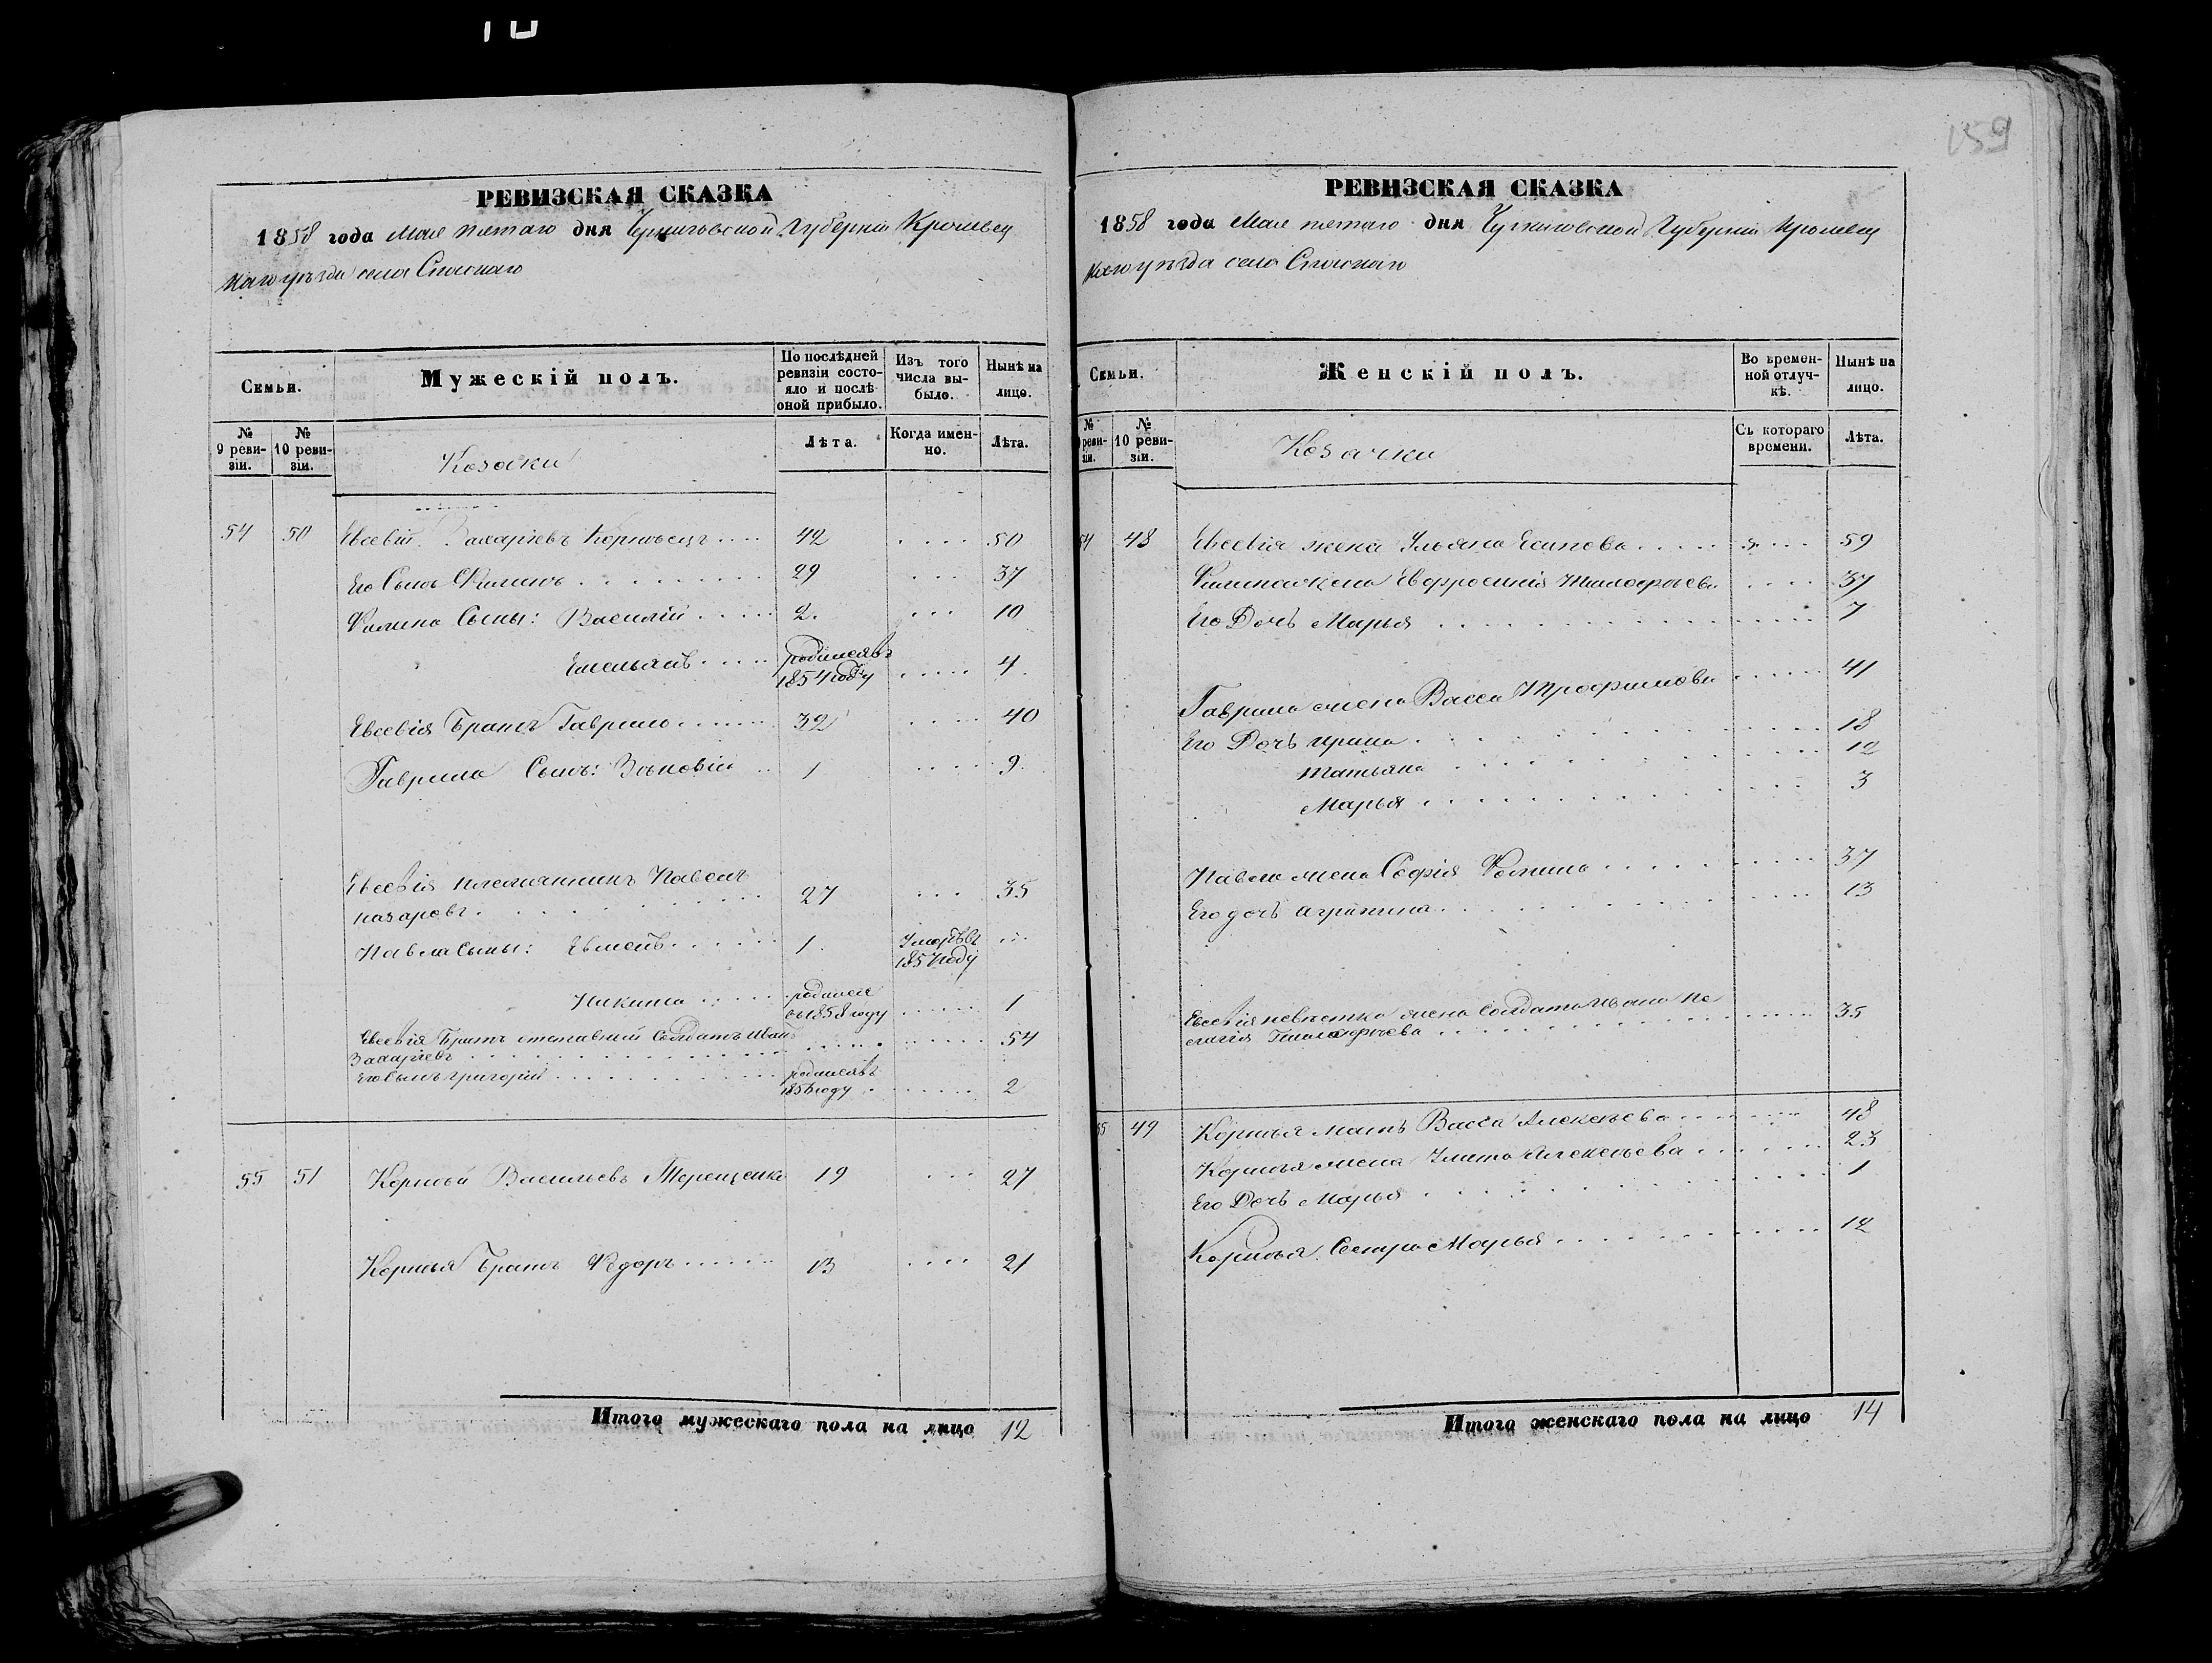 159
РЕВИЗСКАЯ СКАЗКА
1858 года Мая пятаго дня Черниговской Губерніи Кролевец
каго уѣзда села Спаскаго
Семьи.
Мужескій полъ.
По послѣдней ревизіи состояло и послѣ оной прибыло.
Изъ того числа выбыло.
Нынѣ на лицо.
№ 9 ревизіи.
№ 10 ревизіи.
Козаки
Лѣта.
Когда именно.
Лѣта.
54 50 Евсевій Захаріевъ 42 50
Его Сынъ 29 37
Сыны: Василій 2. 10
Емельянъ родился въ 1854 году 4
Евсевія Братъ Гаврило 32 40
Гаврила Сынъ: Зѣновій 1 9
Евсевія племянникъ Павелъ
Назаровъ 27 35
Павла Сыны: 1. Умеръ въ 1857 году
Никита родился въ 1858 году 1
Евсевія Братъ отставный Солдатъ Иванъ
Захаріевъ 54
Его Сынъ Григорій родился въ 1856 году 2
55 51 Корній Васильевъ Терещенко 19 27
Корнія Братъ Фёдоръ 13 21
Итого мужескаго пола на лицо 12
РЕВИЗСКАЯ СКАЗКА
1858 года Мая пятаго дня Черниговской Губерніи Кролевец
каго уѣзда села Спаскаго
Семьи.
Женскій полъ.
Во временной отлучкѣ.
Нынѣ на лицо.
№ 9 ревизіи.
№ 10 ревизіи.
Козачки
Съ котораго времени.
Лѣта.
54 48 Евсевія жена Ульяна Есипова 59
жена Евфросинія Тимофѣева 37
Его Дочь Марья 7
Гаврила жена Васса Трофимова 41
Его Дочь Ирина 18
Татьяна 12
Марья 3
Павла жена Софія Фомина 37
Его дочь Агрипина 13
Евсевія невѣстка жена Солдата Ивана Пе
лагія Тимофѣева 35
55 49 Корнія мать Васса Алексѣева 48
Корнія жена Улита Алексѣева 23
Его Дочь Марья 1
Корнія Сестра Марья 12
Итого женскаго пола на лицо 14